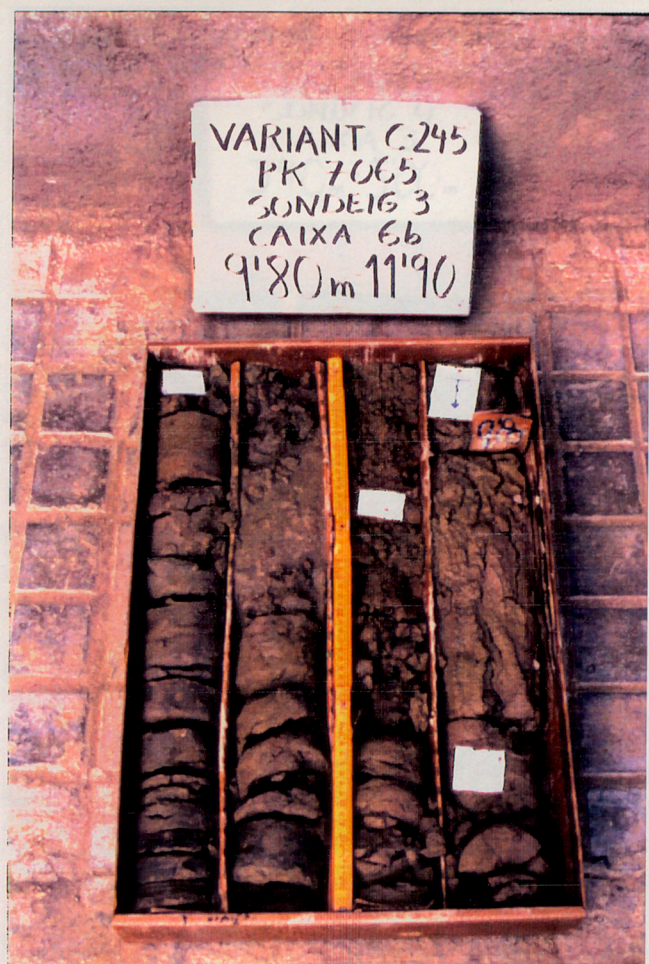 VARIANT C-245
PK 7065
SONDEIG 3
CAIXA 6b
9'80m 11'90